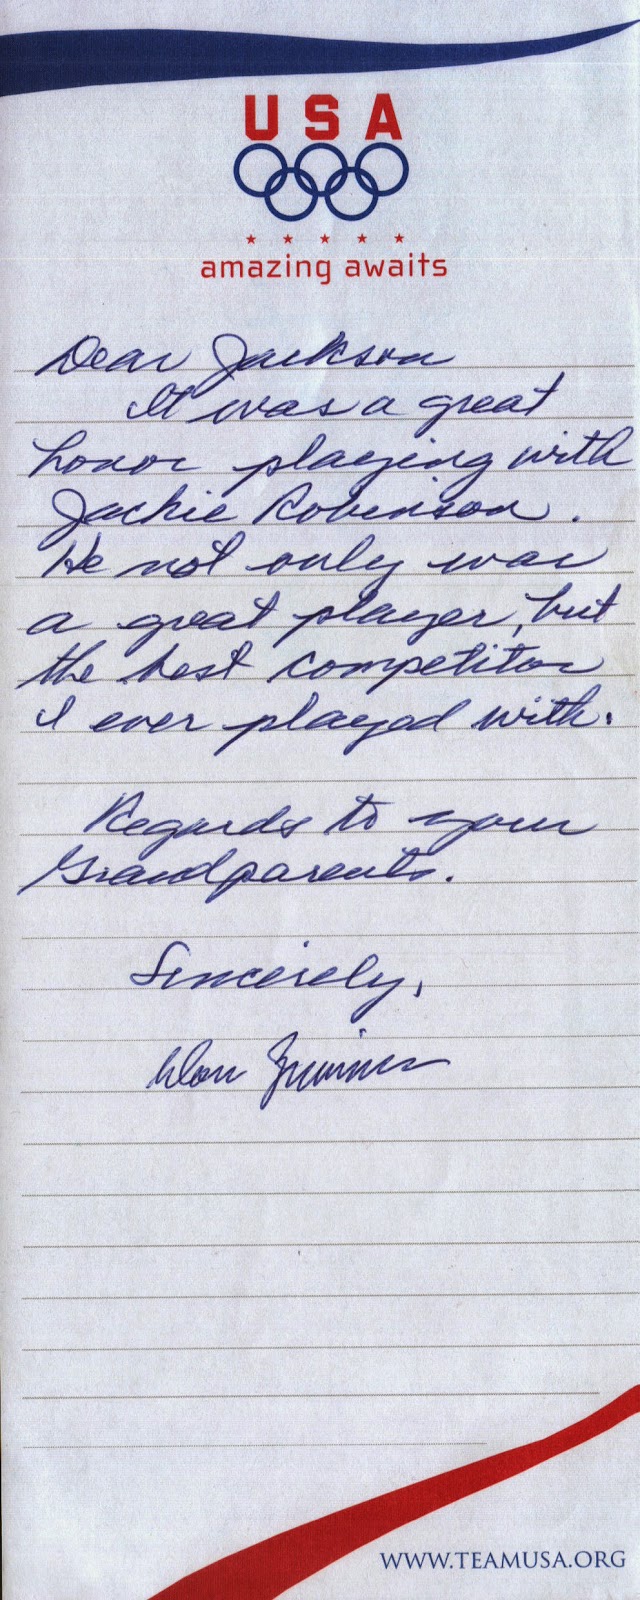 USA
amazing awaits
Dear Jackson
It was a great
honor playing with
Jackie Robinson.
He not only was
a great player, but
the best competitor
I ever played with.
Regards to your
Grandparents.
Sincerely,
Don Zimmer
WWW.TEAMUSA.ORG